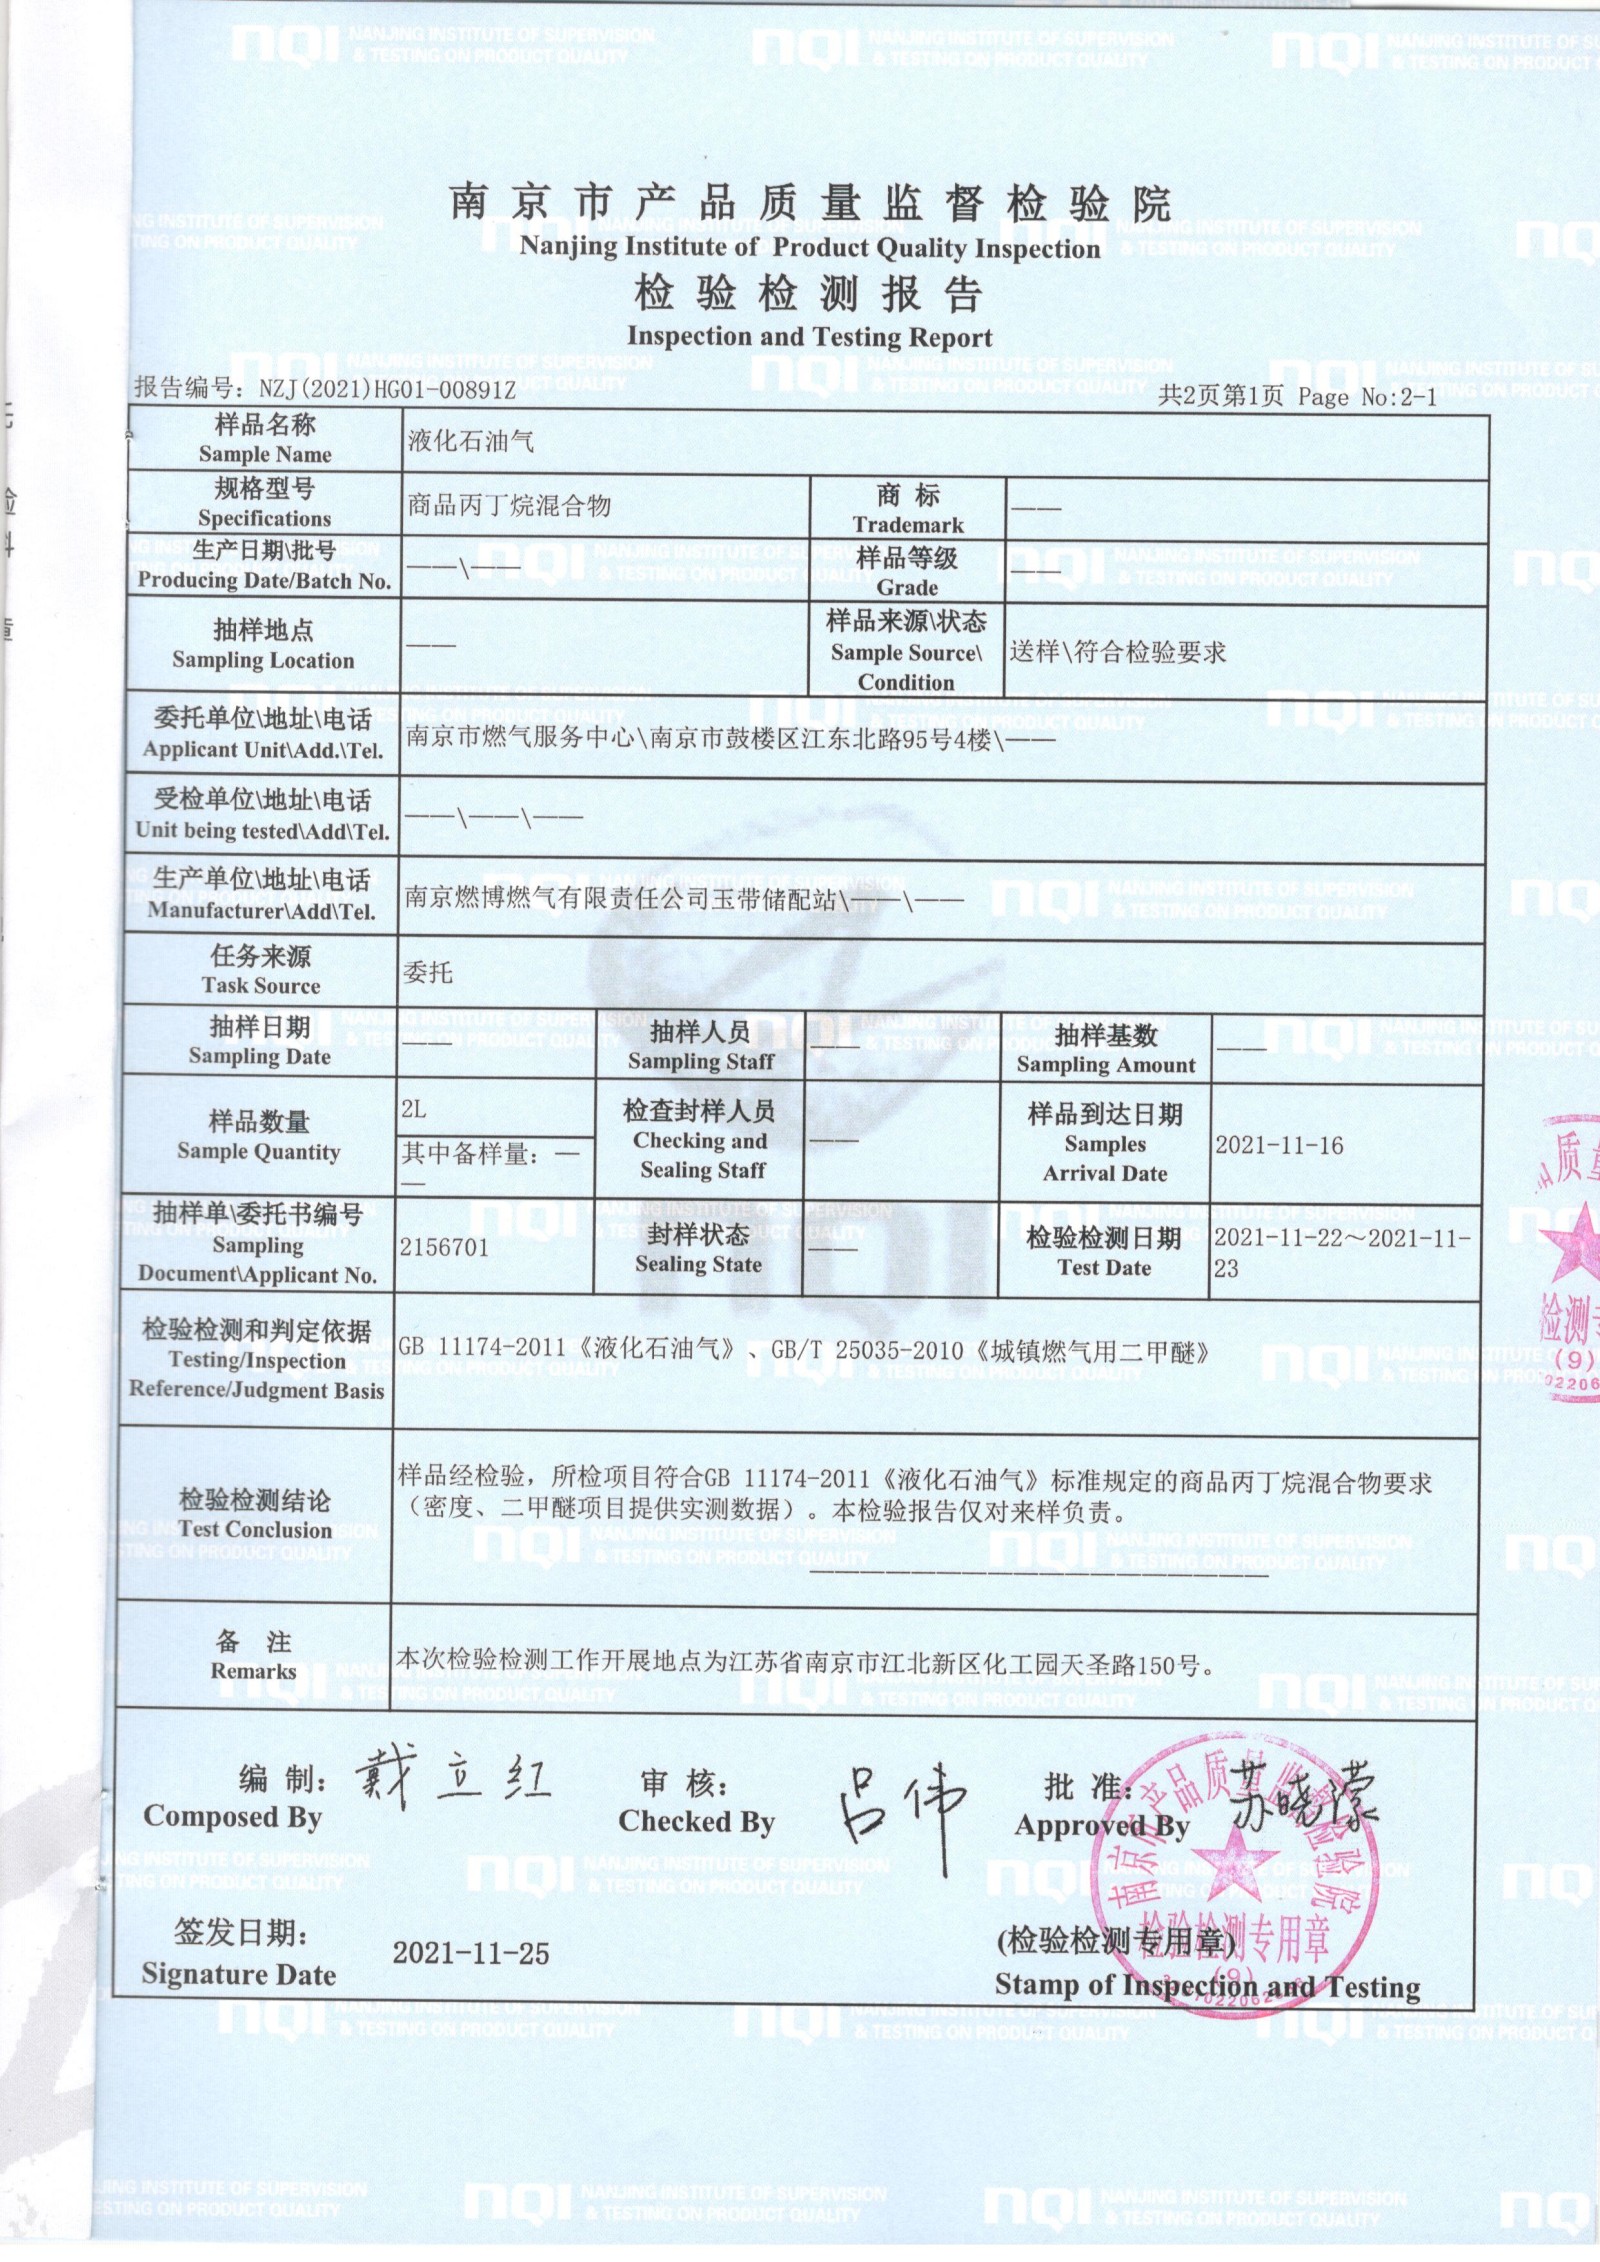 南京市产品质量监督检验院
Nanjing Institute of Product Quality Inspection
检验检测报告
Inspection and Testing Report
报告编号：NZJ(2021)HG01-00891Z
共2页第1页 Page No:2-1
样品名称
Sample Name
液化石油气
规格型号
Specifications
商品丙丁烷混合物
商 标
Trademark
——
生产日期\批号
Producing Date/Batch No.
——\——
样品等级
Grade
——
抽样地点
Sampling Location
——
样品来源\状态
Sample Source\
Condition
送样\符合检验要求
委托单位\地址\电话
Applicant Unit\Add.\Tel.
南京市燃气服务中心\南京市鼓楼区江东北路95号4楼\——
受检单位\地址\电话
Unit being tested\Add\Tel.
——\——\——
生产单位\地址\电话
Manufacturer\Add\Tel.
南京燃博燃气有限责任公司玉带储配站\——\——
任务来源
Task Source
委托
抽样日期
Sampling Date
——
抽样人员
Sampling Staff
——
抽样基数
Sampling Amount
——
样品数量
Sample Quantity
2L
其中备样量：—
—
检查封样人员
Checking and
Sealing Staff
——
样品到达日期
Samples
Arrival Date
2021-11-16
抽样单\委托书编号
Sampling
Document\Applicant No.
2156701
封样状态
Sealing State
——
检验检测日期
Test Date
2021-11-22～2021-11-
23
检验检测和判定依据
Testing/Inspection
Reference/Judgment Basis
GB 11174-2011《液化石油气》、GB/T 25035-2010《城镇燃气用二甲醚》
检验检测结论
Test Conclusion
样品经检验，所检项目符合GB 11174-2011《液化石油气》标准规定的商品丙丁烷混合物要求
（密度、二甲醚项目提供实测数据）。本检验报告仅对来样负责。
备 注
Remarks
本次检验检测工作开展地点为江苏省南京市江北新区化工园天圣路150号。
编 制：
戴立红
Composed By
审 核：
吕伟
Checked By
批 准：
苏晓濛
Approved By
签发日期：
2021-11-25
Signature Date
(检验检测专用章)
Stamp of Inspection and Testing
南京市产品质量监督检验院
检验检测专用章
(9)
nqi
NANJING INSTITUTE OF SUPERVISION
& TESTING ON PRODUCT QUALITY